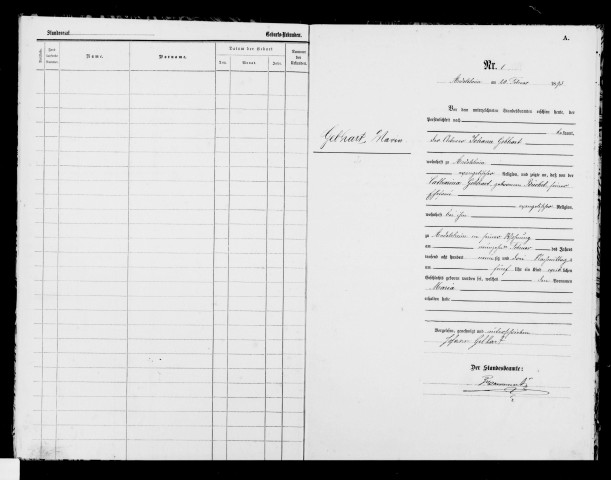 Standesamt
Geburts-Urkunden.
Name.
Vorname.
Datum der Geburt
Tag.
Monat.
Jahr.
Nummer der Urkunden.
A.
Nr. 1
am 20 Februar
Gebhart, Maria
Vor dem unterzeichneten Standesbeamten erschien heute, der
Persönlichkeit nach
bekannt,
der Ackerer Johann Gebhart
wohnhaft zu
evangelischer Religion, und zeigte an, daß von der
Catharina Gebhart, geborenen
Ehefrau
evangelischer Religion,
wohnhaft bei ihm
zu in seiner Wohnung
am Februar des Jahres
tausend acht hundert neunzig und drei Nachmittags
um fünf Uhr ein Kind weiblichen
Geschlechts geboren worden ist, welches den Vornamen
Maria
erhalten habe
Vorgelesen, genehmigt und unterschrieben
Johann Gebhart
Der Standesbeamte: